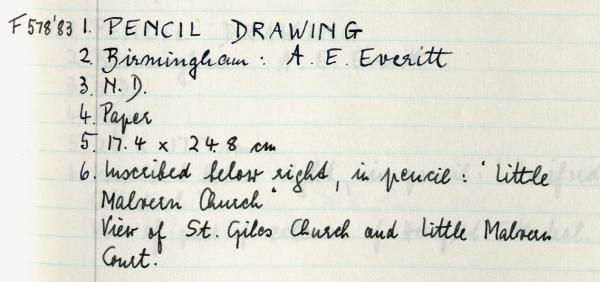 F 578'83 1. PENCIL DRAWING
2. Birmingham: A. E. Everitt
3. N.D.
4. Paper
5. 17.4 x 24.8 cm
6. Inscribed below right, in pencil: 'Little
Malvern Church'
View of St. Giles Church and Little Malvern
Court.